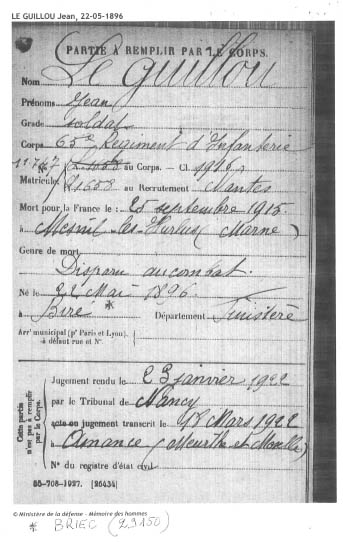 LE GUILLOU Jean, 22-05-1896
PARTIE À REMPLIR PAR LE CORPS.
Nom Le Guillou
Prénoms Jean
Grade soldat
Corps 65e Régiment d'Infanterie
N° 11.767 au Corps. — Cl. 1916
Matricule. au Recrutement Nantes
Mort pour la France le 25 septembre 1915
à Mesnil-les-Hurlus (Marne)
Genre de mort
Disparu au combat.
Né le 22 Mai 1896
à Département Finistère
Arrt municipal (pr Paris et Lyon),
à défaut rue et N°.
Cette partie n'est pas à remplir par le Corps.
Jugement rendu le 23 janvier 1922
par le Tribunal de Nancy
acte ou jugement transcrit le 18 Mars 1922
à Amance (Meurthe et Moselle)
N° du registre d'état civil
[26434]
© Ministère de la défense - Mémoire des hommes
* BRIEC (29150)